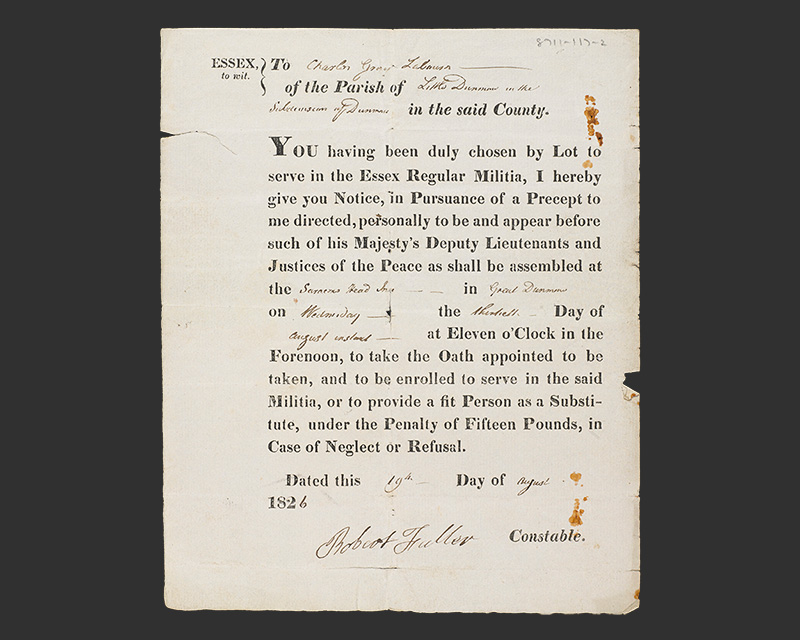 8711-117-2
ESSEX, To Charles Gray
to wit.
of the Parish of Little Dunmow in the
Subdivision of Dunmow in the said County.
YOU having been duly chosen by Lot to
serve in the Essex Regular Militia, I hereby
give you Notice, in Pursuance of a Precept to
me directed, personally to be and appear before
such of his Majesty's Deputy Lieutenants and
Justices of the Peace as shall be assembled at
the Saracens Head Inn in Great Dunmow
on Wednesday the Day of
August instant at Eleven o'Clock in the
Forenoon, to take the Oath appointed to be
taken, and to be enrolled to serve in the said
Militia, or to provide a fit Person as a Substi-
tute, under the Penalty of Fifteen Pounds, in
Case of Neglect or Refusal.
Dated this 19th Day of August
1826
Robert Fuller Constable.